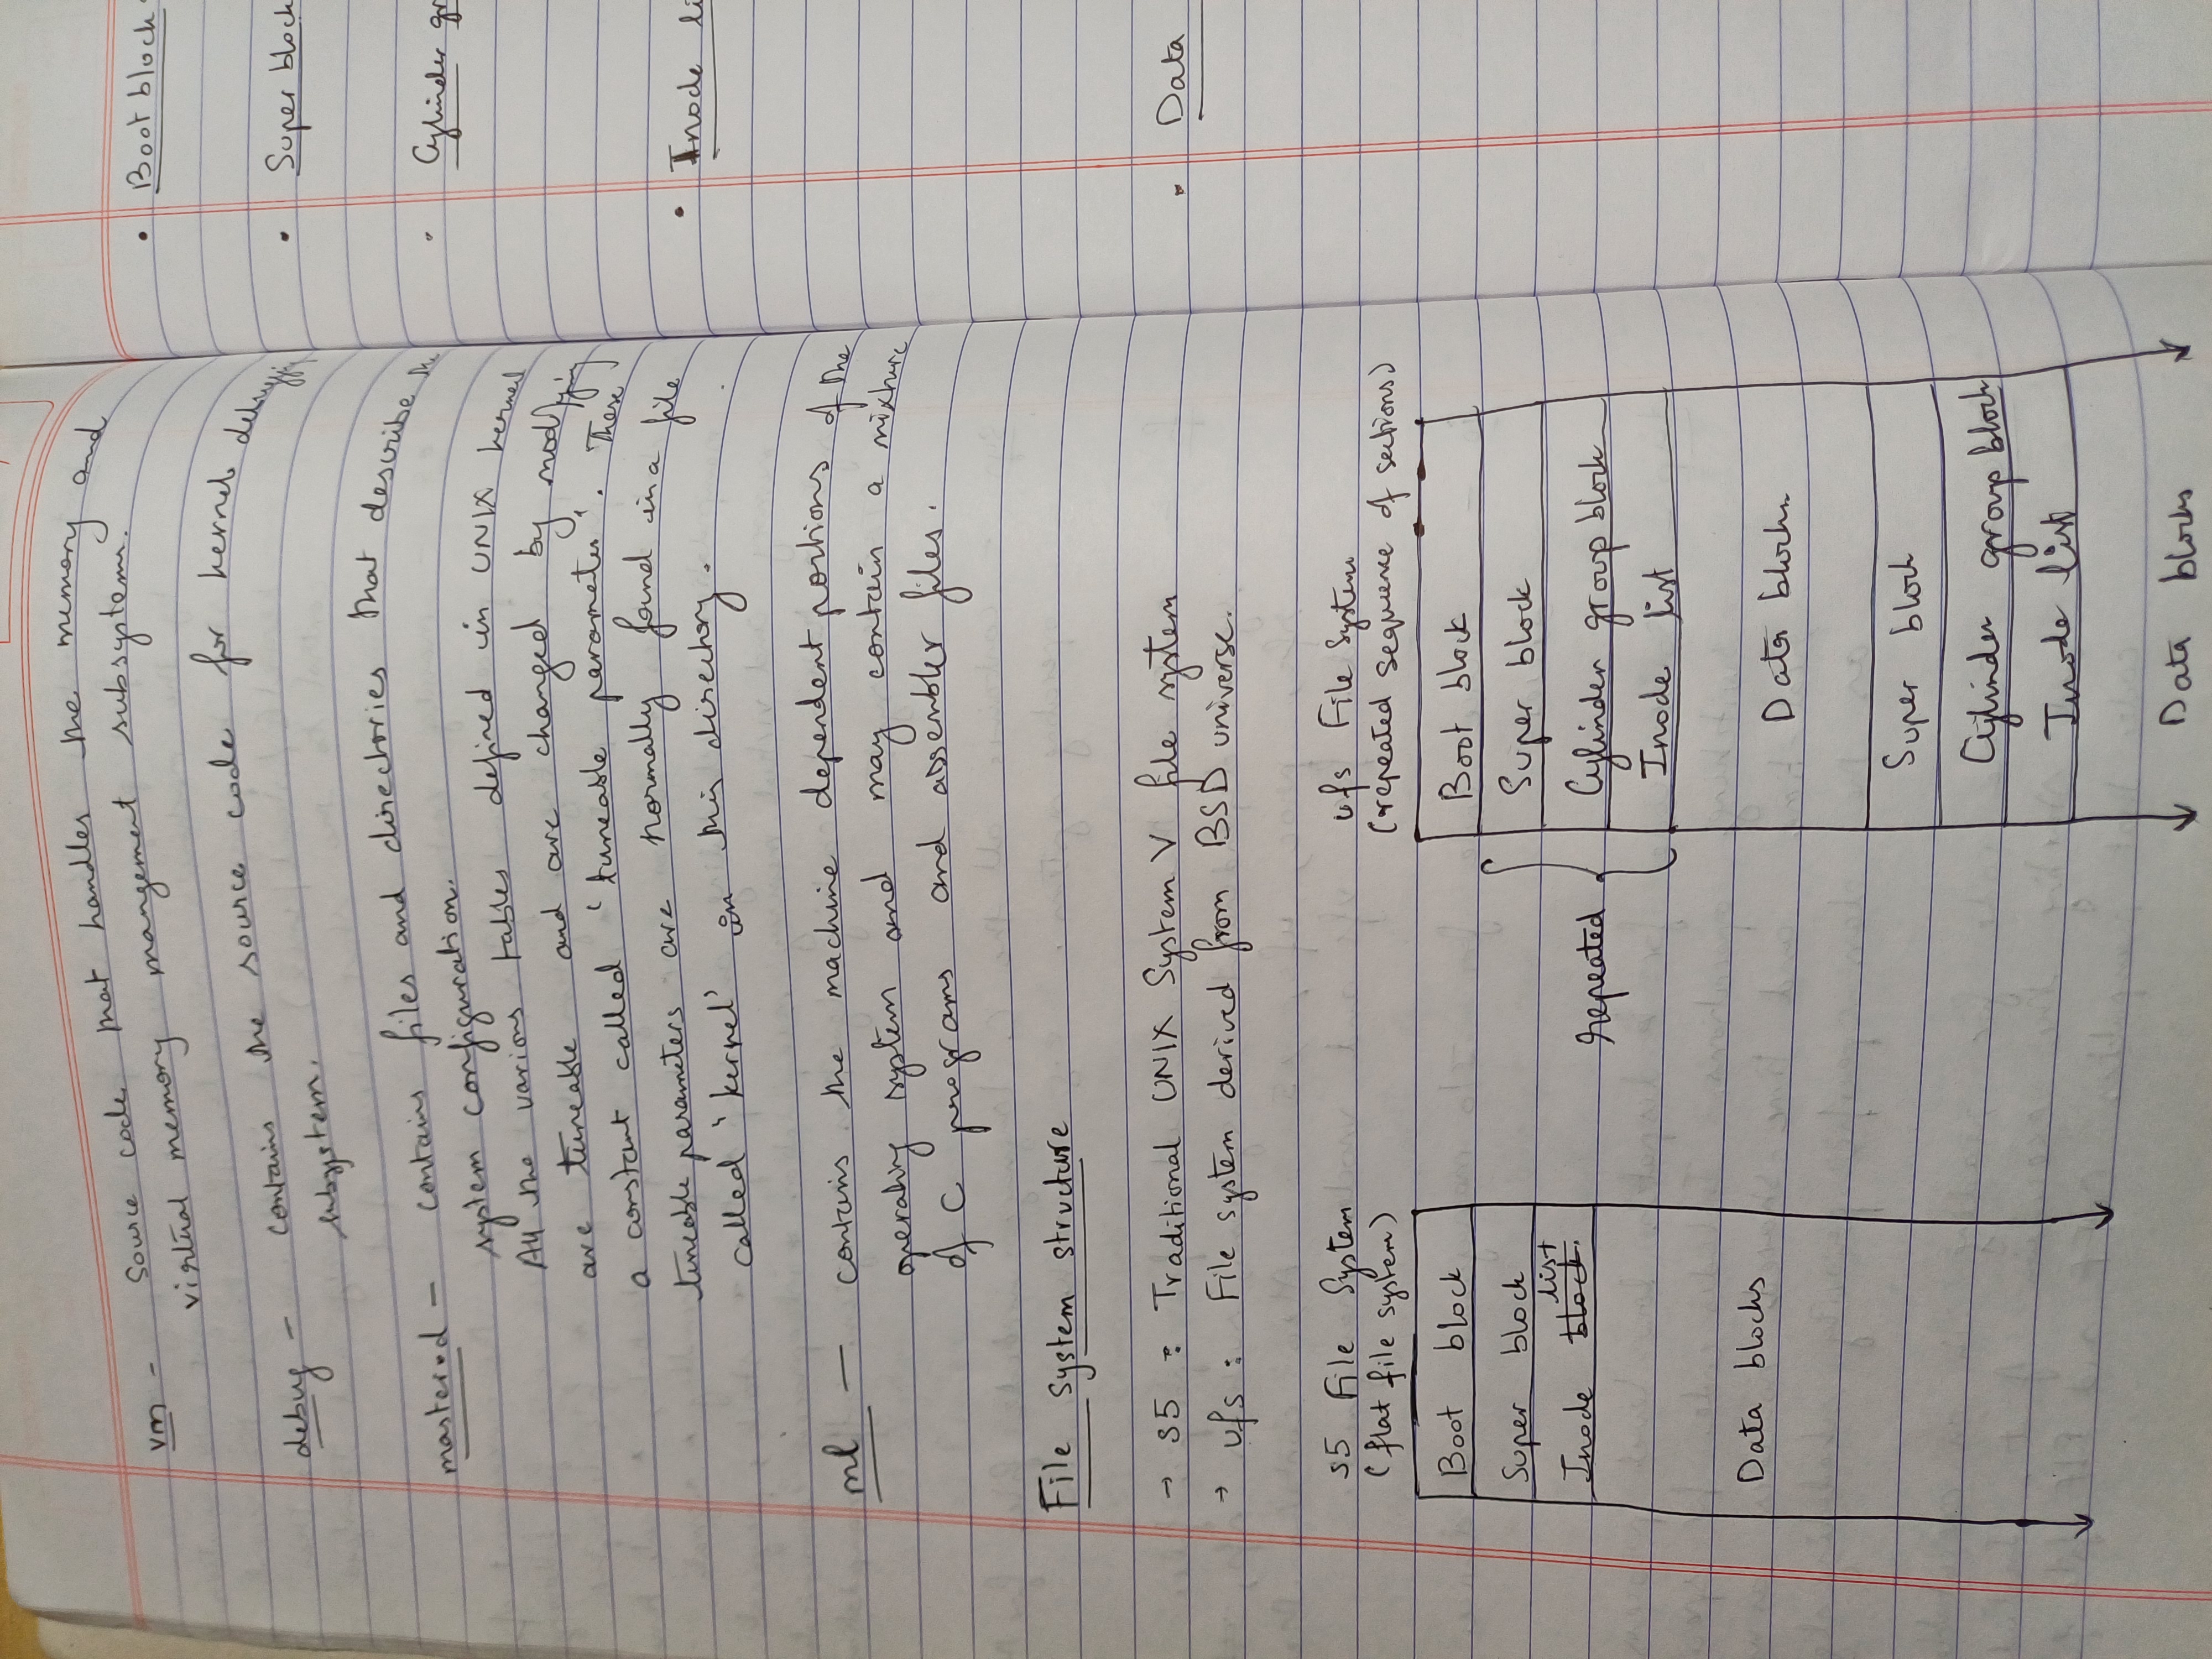 vm - source code that handles the memory and
virtual memory management subsystem.
debug - contains the source code for kernel debugging
subsystem.
master.d - contains files and directories that describe the
system configuration.
All the various tables defined in UNIX kernel
are tuneable and are changed by modifying
a constant called 'tuneable parameter'. These
tuneable parameters are normally found in a file
called 'kernel' in this directory.
ml - contains the machine dependent portions of the
operating system and may contain a mixture
of C programs and assembler files.
File system structure
→ S5 : Traditional UNIX System V file system
→ ufs : File system derived from BSD universe.
S5 File System
(flat file system)
Boot block
Super block
Inode list
Data blocks
ufs File System
(repeated sequence of sections)
Boot block
Super block
Cylinder group block
Inode list
repeated
Data blocks
Super block
Cylinder group block
Inode list
Data blocks
• Boot block
• Super block
• Cylinder gr
• Inode li
• Data